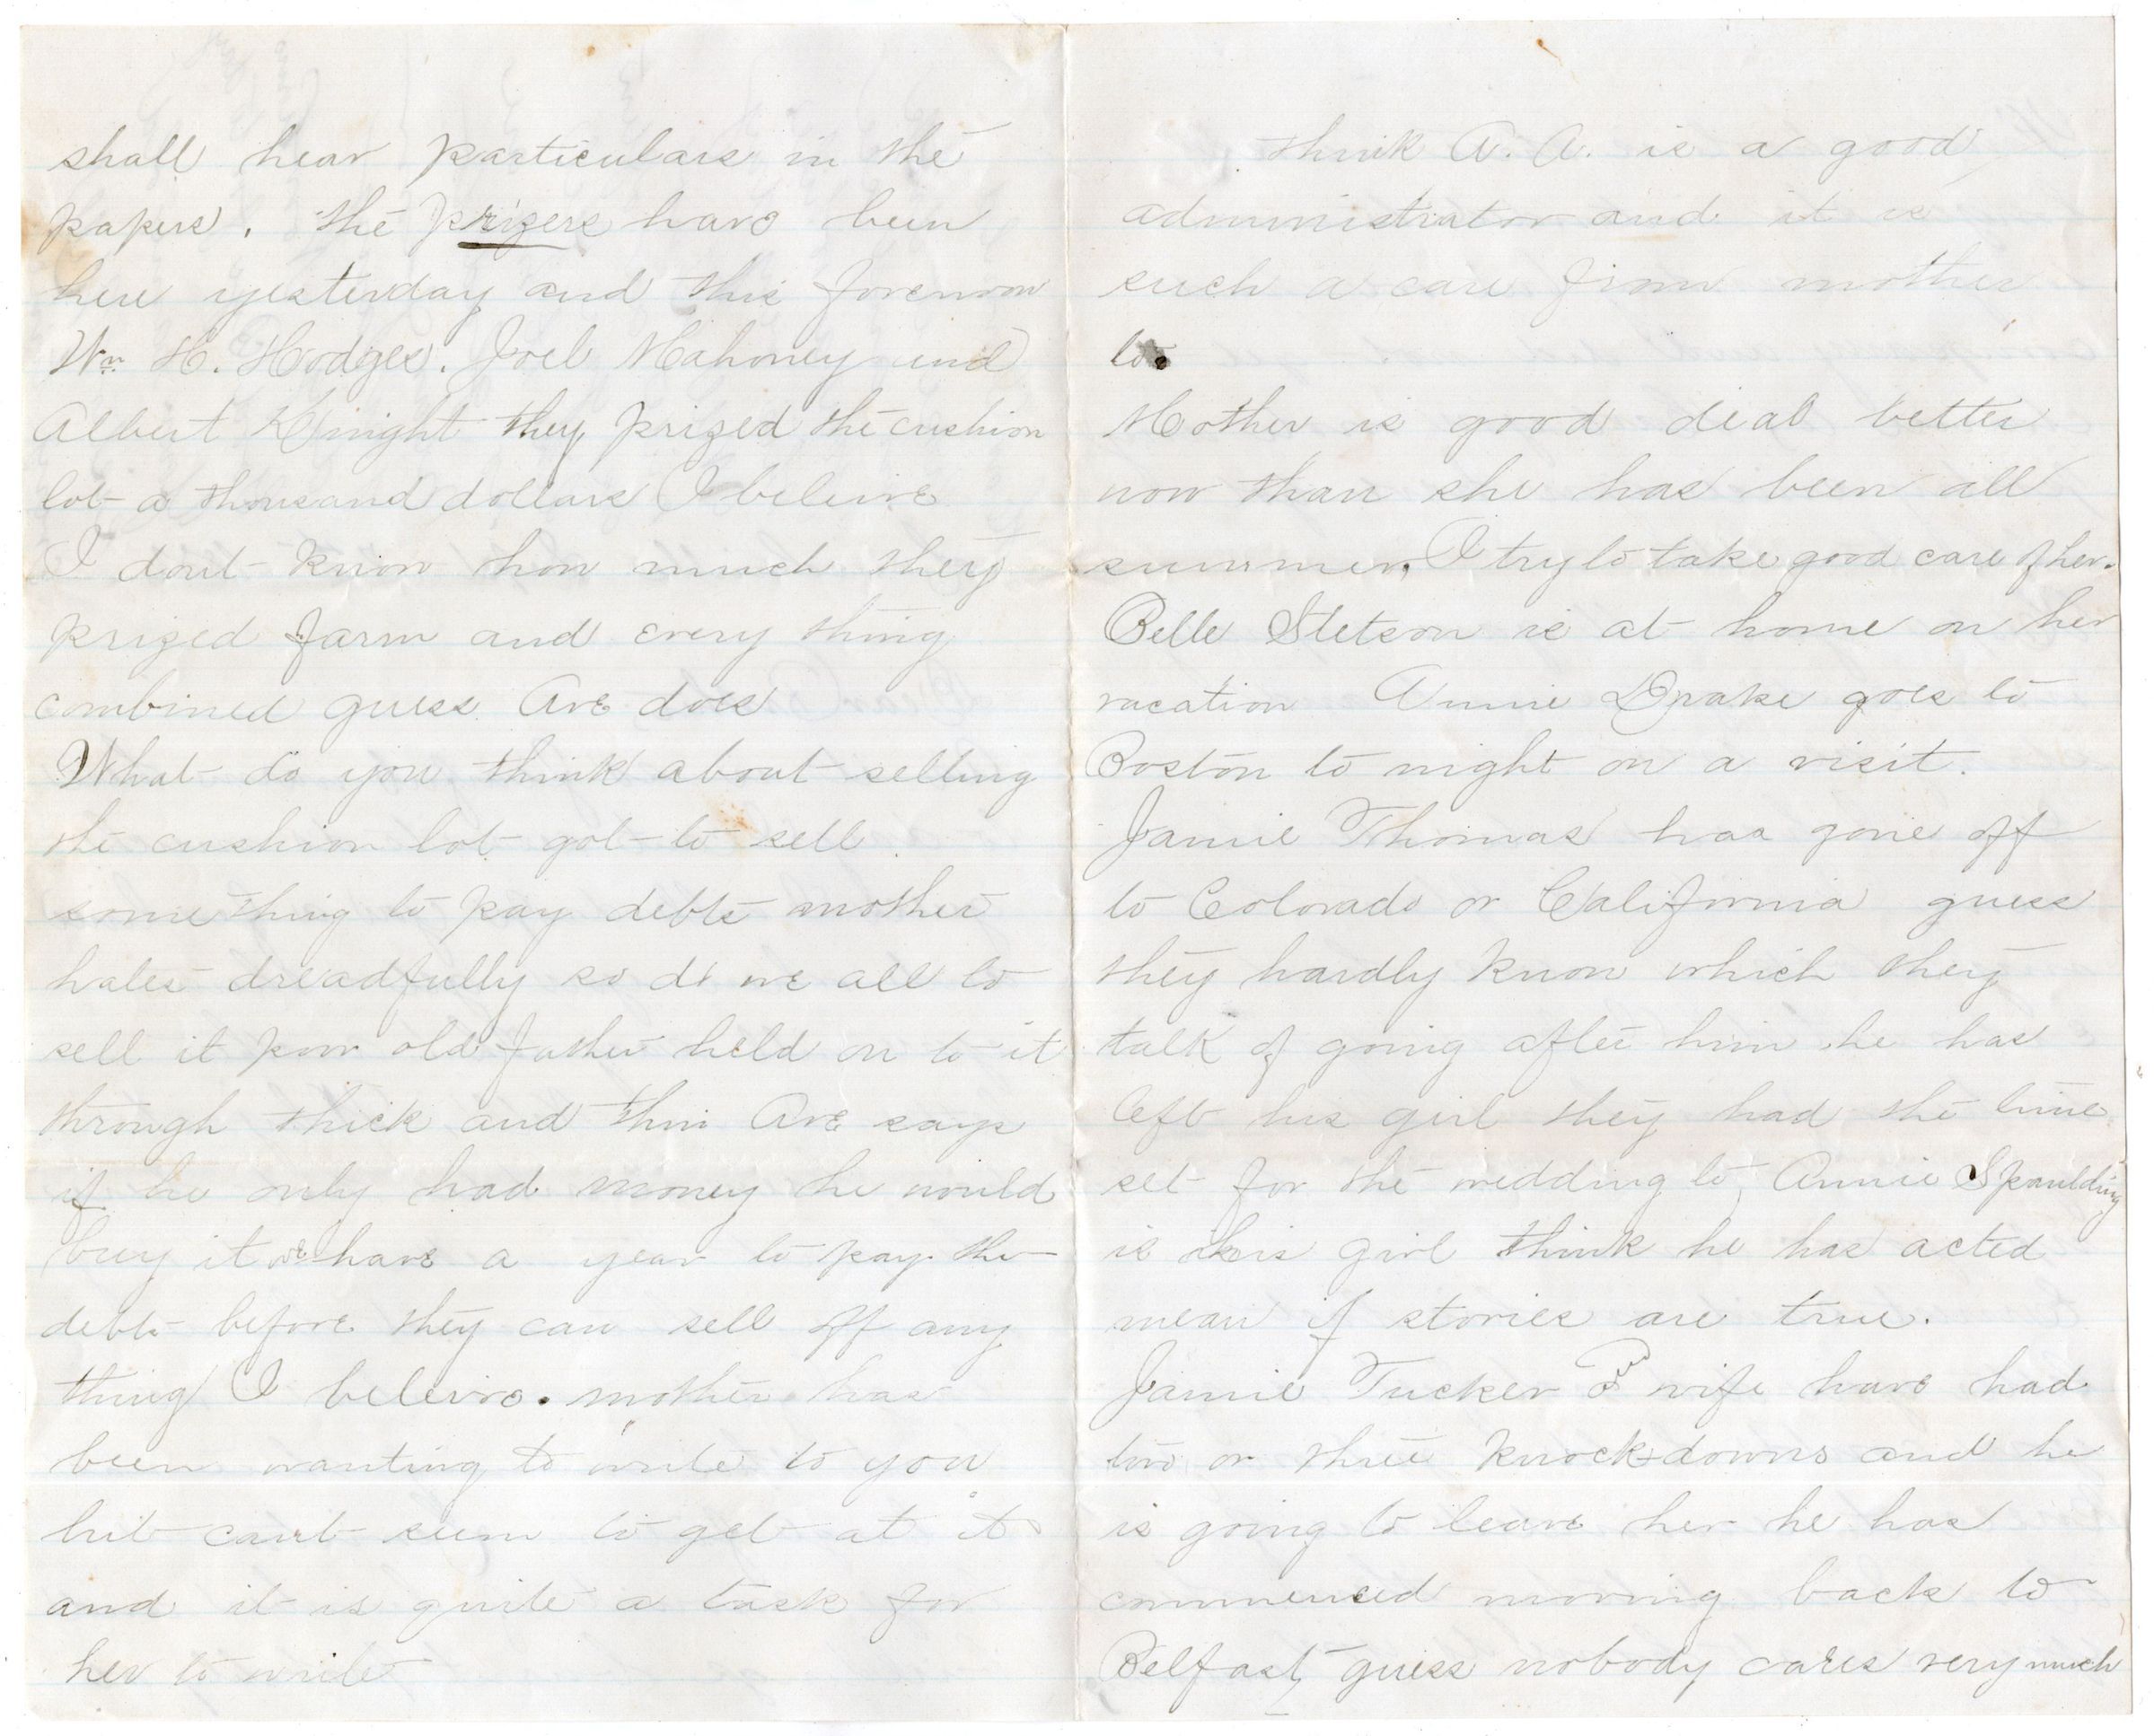 shall hear particulars in the
papers. the prizers have been
here yesterday and this forenoon
Wm H. Hodges. Joel Mahoney and
Albert Knight they prized the cushion
lot a thousand dollars I beleive
I dont know how much they
prized farm and every thing
combined guess Ave does
What do you think about selling
the cushion lot got to sell
something to pay debts mother
hates dreadfully so do we all to
sell it poor old father held on to it
through thick and thin Ave says
if he only had money he would
buy it we have a year to pay the
debts before they can sell off any
thing I beleive. mother has
been wanting to write to you
but cant seem to get at it
and it is quite a task for
her to write
think A. A. is a good
administrator and it is
such a care from mother
to.
Mother is good deal better
now than she has been all
summer, I try to take good care of her.
Belle Stetson is at home on her
vacation Annie Drake goes to
Boston to night on a visit.
Jamie Thomas has gone off
to Colorado or California guess
they hardly know which they
talk of going after him he has
left his girl they had the time
set for the wedding to, Annie Spaulding
is his girl think he has acted
mean if stories are true.
Jamie Tucker & wife have had
two or three knockdowns and he
is going to leave her he has
commenced moving back to
Belfast, guess nobody cares very much